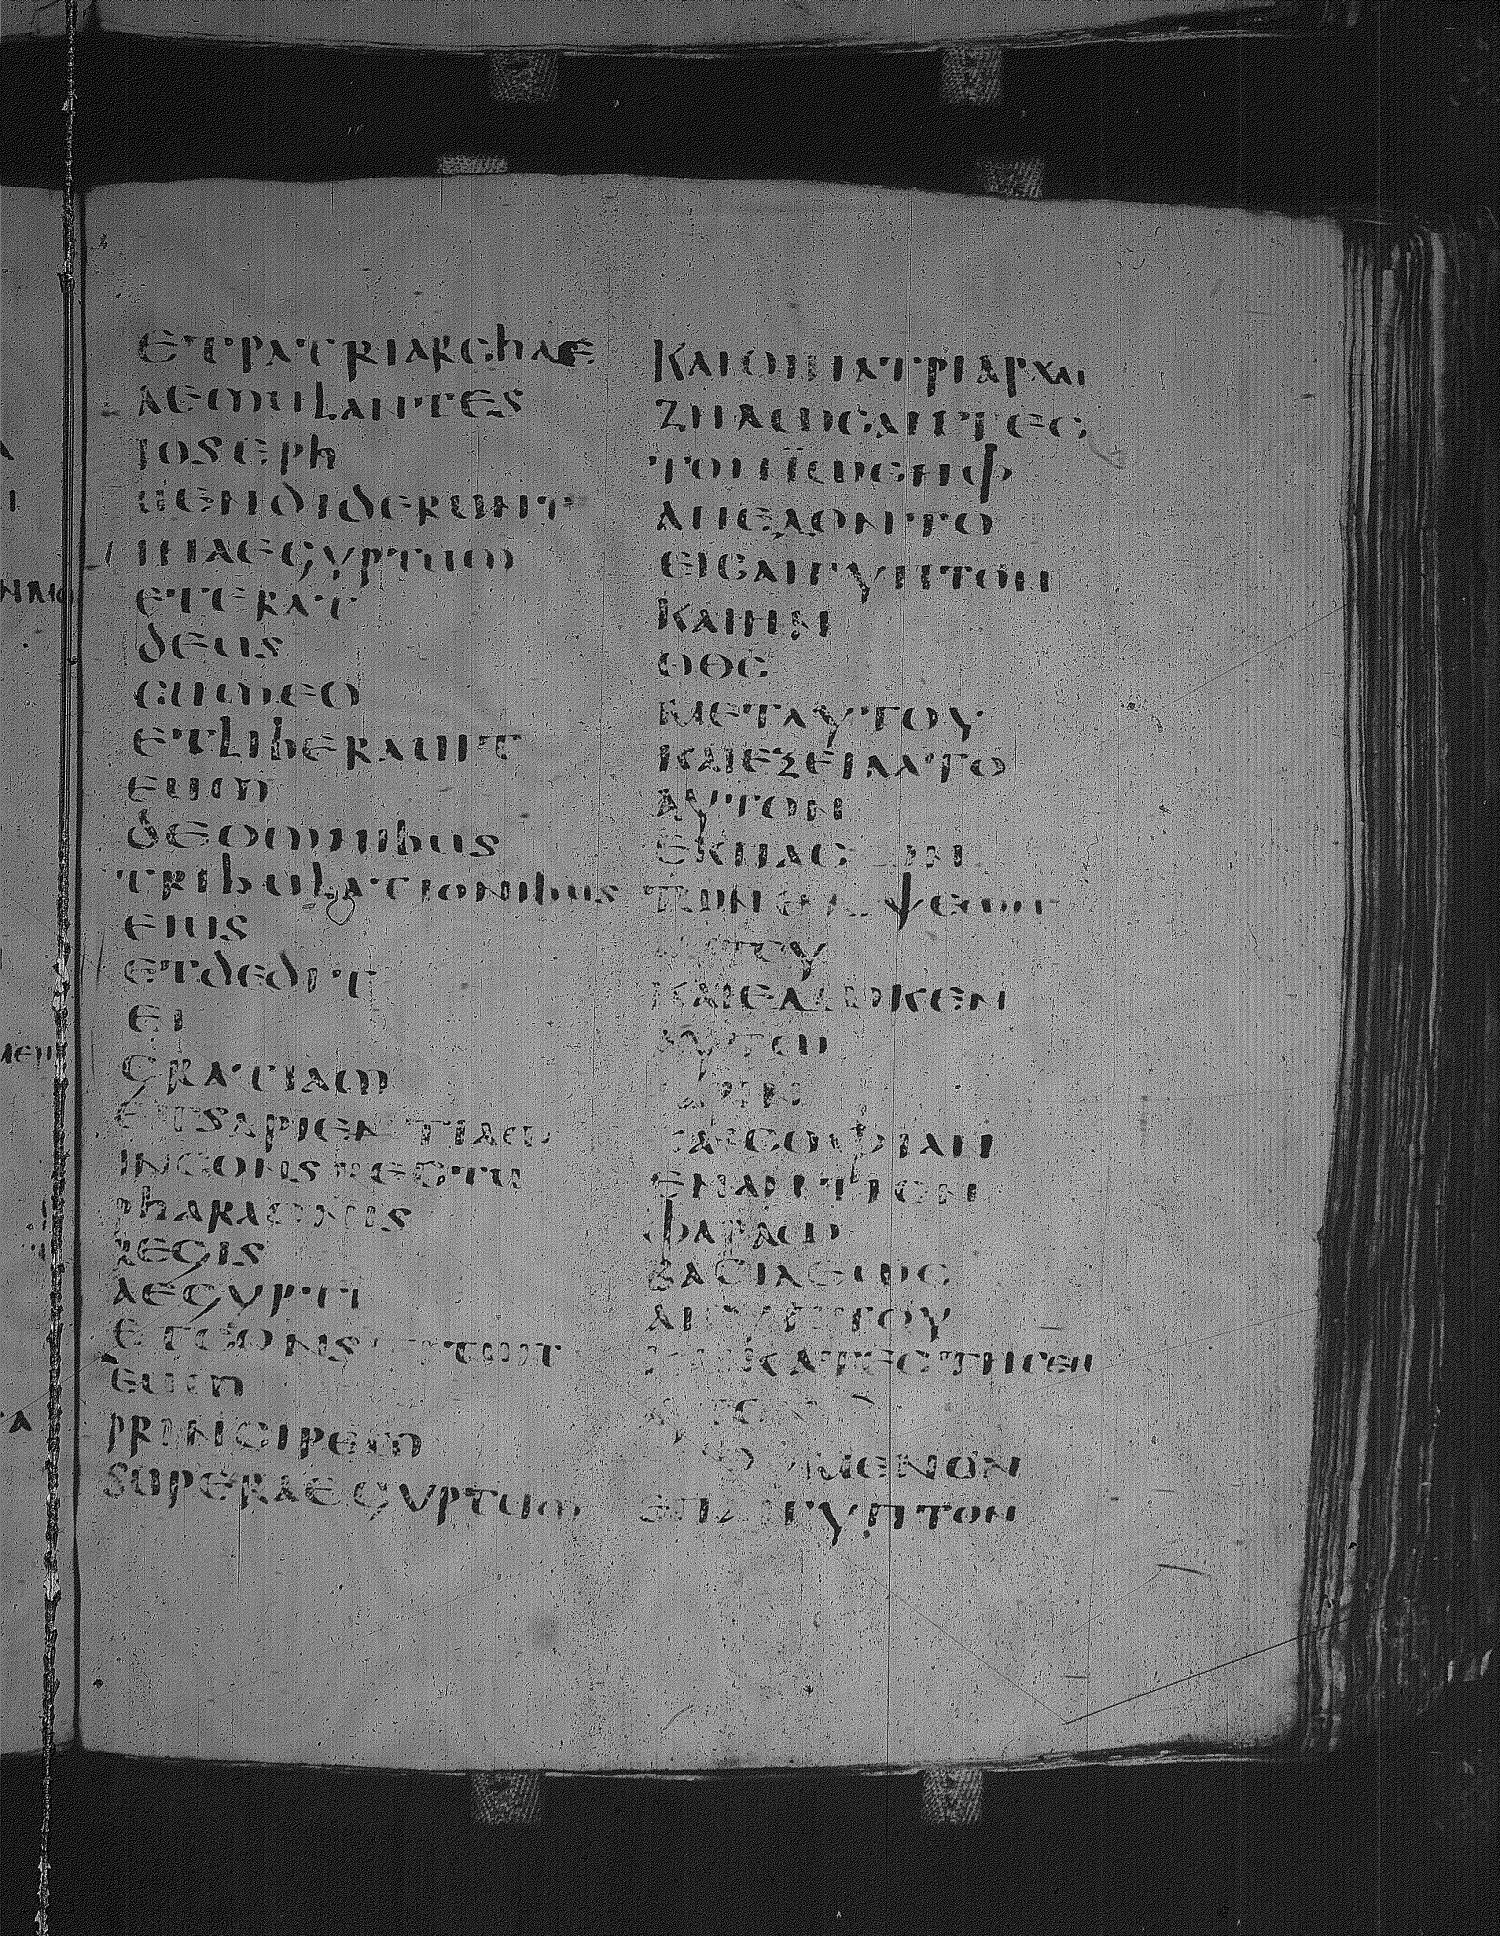 ET PATRIARCHAE
AEMULANTES
IOSEPH
UENDIDERUNT
IN AEGYPTUM
ET ERAT
DEUS
CUM EO
ET LIBERAUIT
EUM
DE OMNIBUS
TRIBULATIONIBUS
EIUS
ET DEDIT
EI
GRATIAM
ET SAPIENTIAM
IN CONSPECTU
PHARAONIS
REGIS
AEGYPTI
ET CONSTITUIT
EUM
PRINCIPEM
SUPER AEGYPTUM
ΚΑΙ ΟΙ ΠΑΤΡΙΑΡΧΑΙ
ΖΗΛΩCΑΝΤΕC
ΤΟΝ ΙΩCΗΦ
ΑΠΕΔΟΝΤΟ
ΕΙC ΑΙΓΥΠΤΟΝ
ΚΑΙ ΗΝ
Ο ΘC
ΜΕΤ ΑΥΤΟΥ
ΚΑΙ ΕΞΕΙΛΑΤΟ
ΑΥΤΟΝ
ΕΚ ΠΑCΩΝ
ΤΩΝ ΘΛΙΨΕΩΝ
ΑΥΤΟΥ
ΚΑΙ ΕΔΩΚΕΝ
ΑΥΤΩ
ΚΑΙ CΟΦΙΑΝ
ΕΝΑΝΤΙΟΝ
ΦΑΡΑΩ
ΒΑCΙΛΕΩC
ΑΙΓΥΠΤΟΥ
ΚΑΙ ΚΑΤΕCΤΗCΕΝ
ΕΠ ΑΙΓΥΠΤΟΝ